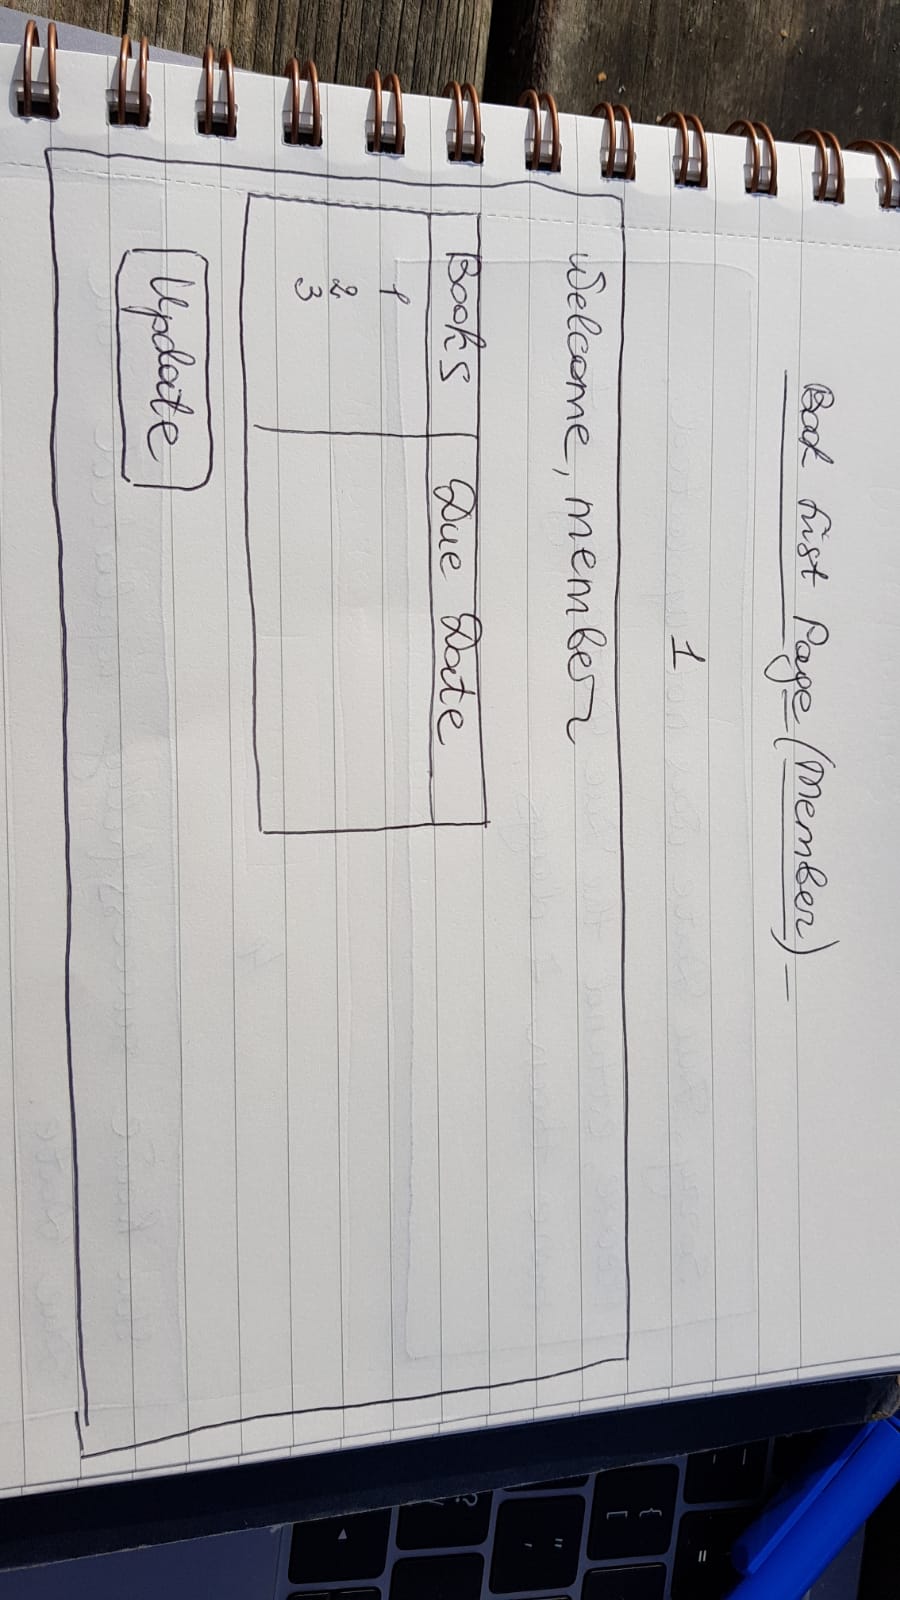 Book List Page (Member)
1
Welcome, member
Books Due Date
1
2
3
Update